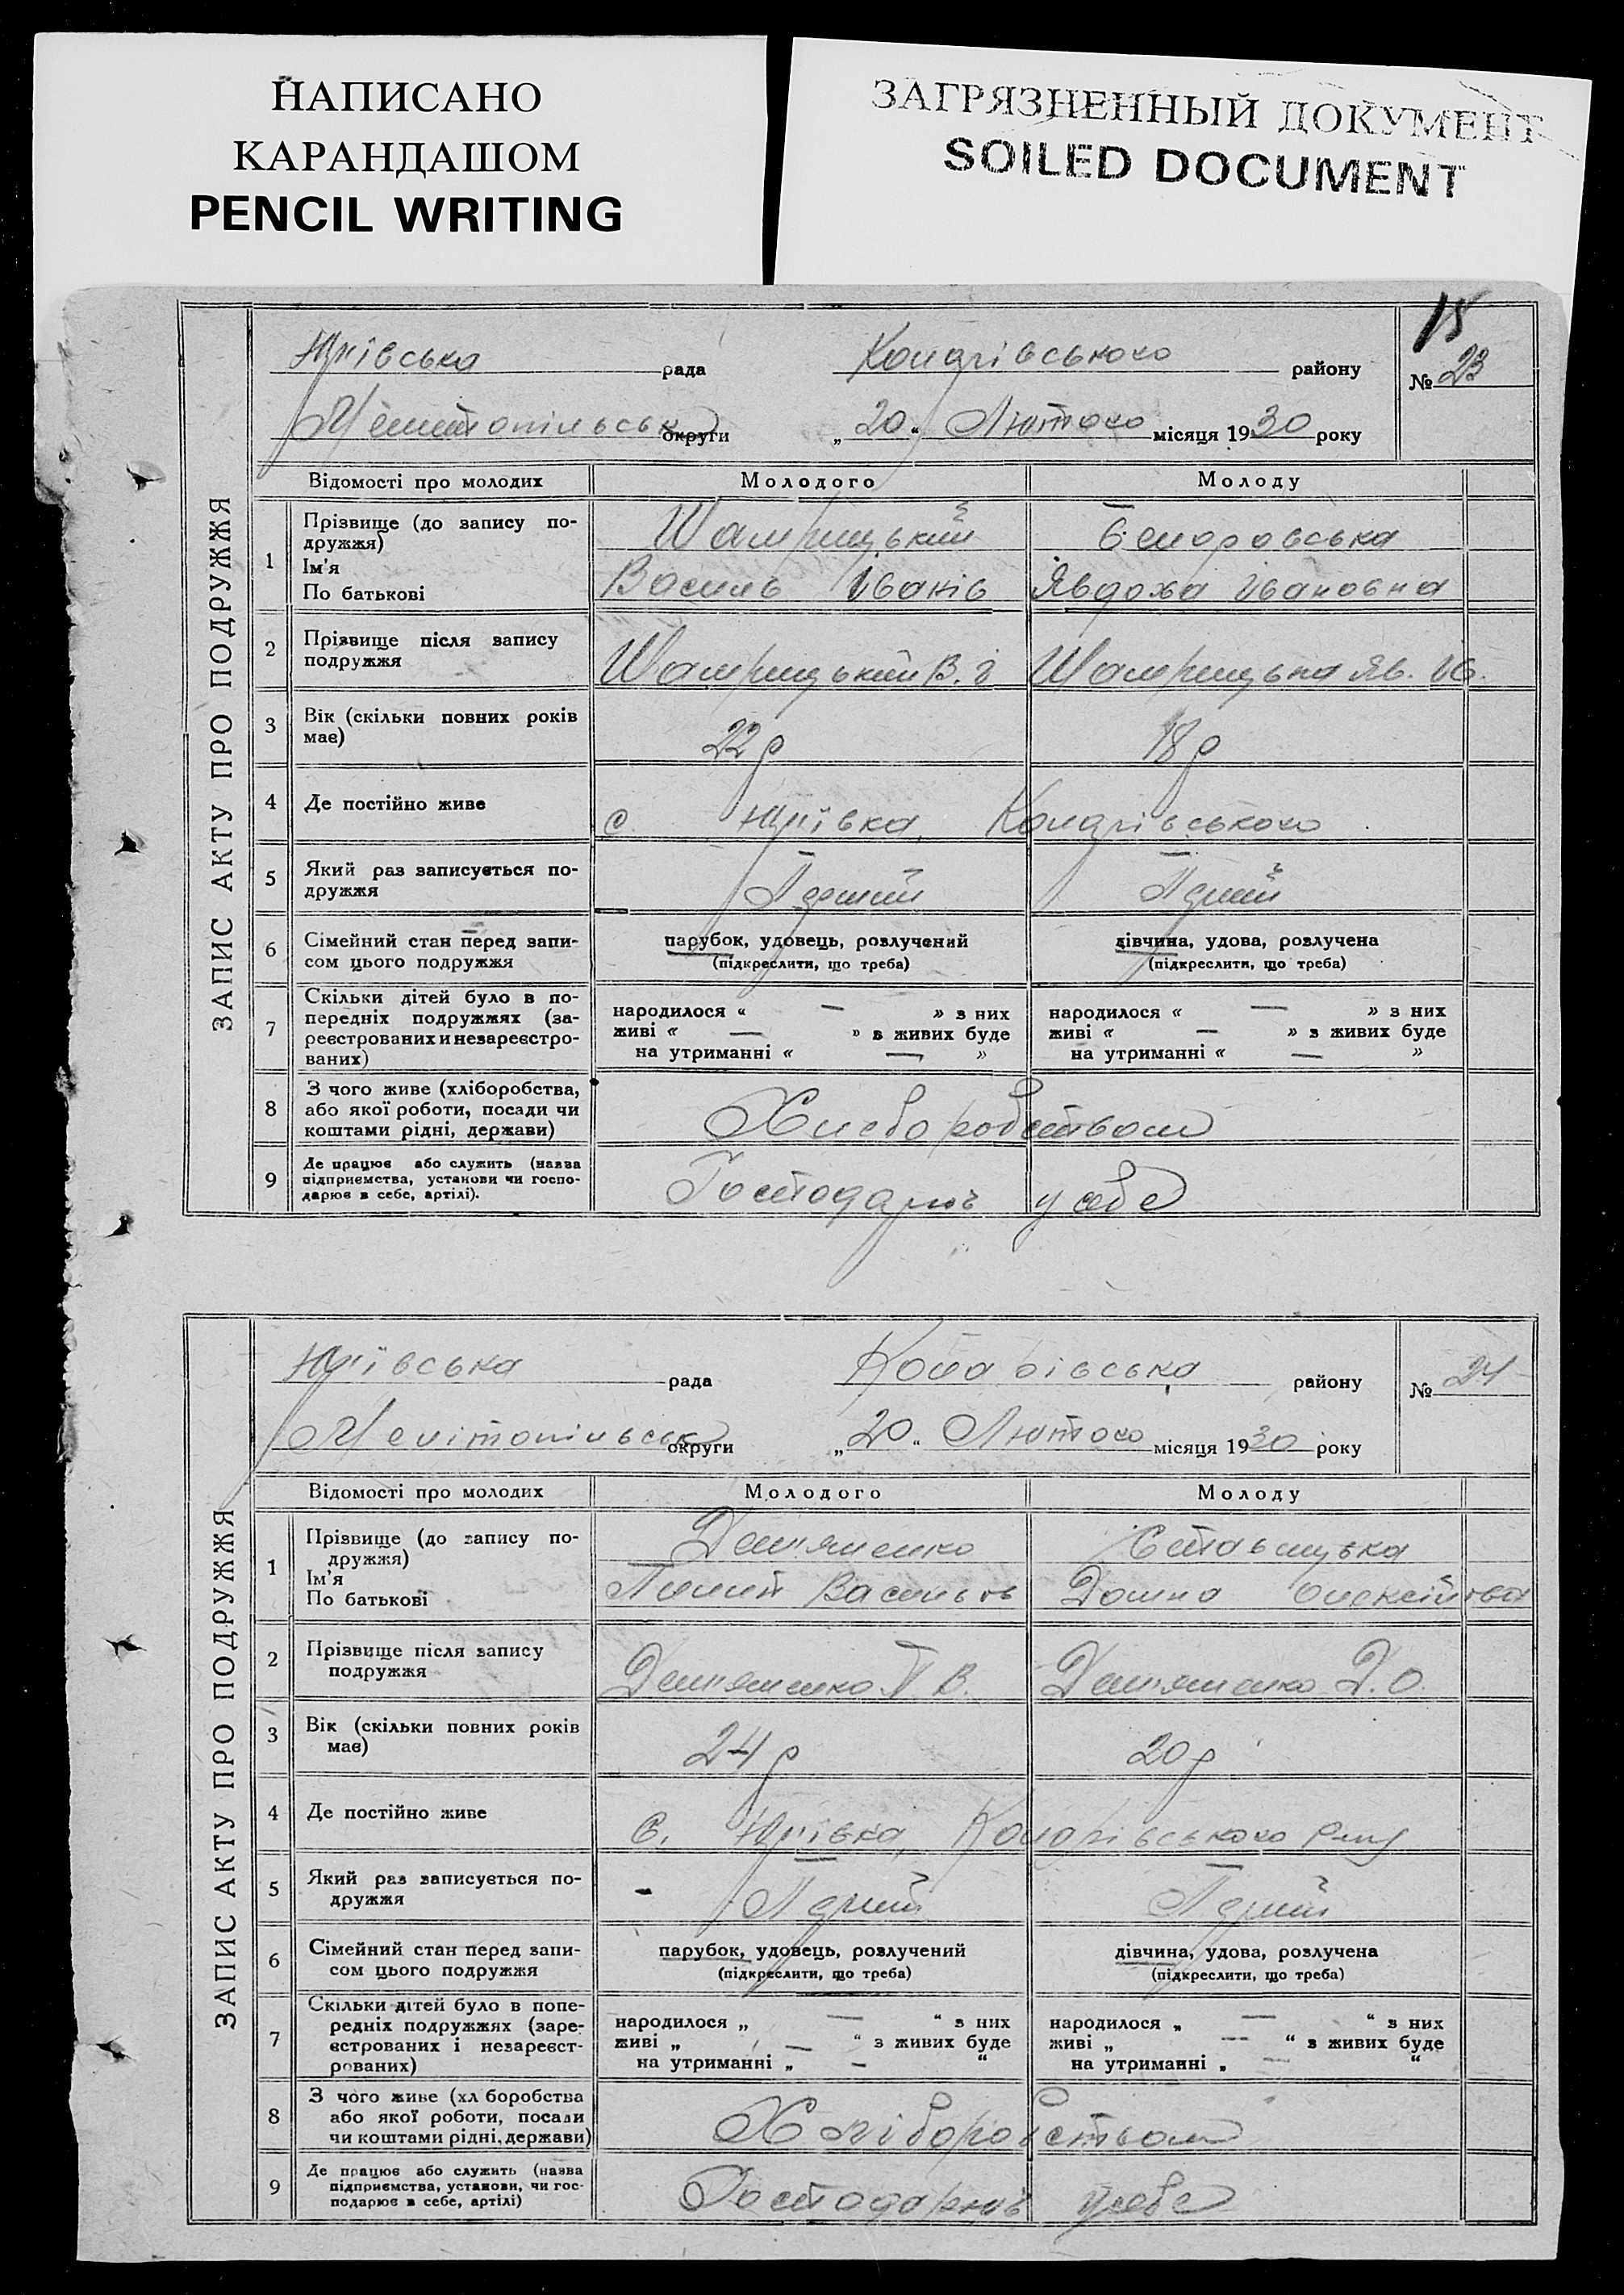 НАПИСАНО
КАРАНДАШОМ
PENCIL WRITING
ЗАГРЯЗНЕННЫЙ ДОКУМЕНТ
SOILED DOCUMENT
15
ЗАПИС АКТУ ПРО ПОДРУЖЖЯ
Юріївська рада району № 23
округи „20“ Лютого місяця 1930 року
Відомості про молодих Молодого Молоду
1 Прізвище (до запису по-
дружжя)
Ім'я
По батькові
Василь Іванів Явдоха Івановна
2 Прізвище після запису
подружжя
3 Вік (скільки повних років
має)
22 р 18 р
4 Де постійно живе
с Юріївка,
5 Який раз записується по-
дружжя
6 Сімейний стан перед запи-
сом цього подружжя
парубок, удовець, розлучений дівчина, удова, розлучена
(підкреслити, що треба) (підкреслити, що треба)
7 Скільки дітей було в по-
передніх подружжях (за-
реєстрованих и незареєстро-
ваних)
народилося « — » з них народилося « — » з них
живі « — » в живих буде живі « — » з живих буде
на утриманні « — » на утриманні « — »
8 З чого живе (хліборобства,
або якої роботи, посади чи
коштами рідні, держави)
9 Де працює або служить (назва
підприємства, установи чи госпо-
дарює в себе, артілі).
у себе
ЗАПИС АКТУ ПРО ПОДРУЖЖЯ
Юріївська рада району № 24
округи „20“ Лютого місяця 1930 року
Відомості про молодих Молодого Молоду
1 Прізвище (до запису по-
дружжя)
Ім'я
По батькові
Дем'яненко
Домна
2 Прізвище після запису
подружжя
Дем'яненко П В. Дем'яненко Д. О.
3 Вік (скільки повних років
має)
24 р 20 р
4 Де постійно живе
с. Юріївка,
5 Який раз записується по-
дружжя
6 Сімейний стан перед запи-
сом цього подружжя
парубок, удовець, розлучений дівчина, удова, розлучена
(підкреслити, що треба) (підкреслити, що треба)
7 Скільки дітей було в попе-
редніх подружжях (заре-
єстрованих і незареєст-
рованих)
народилося „ — “ з них народилося „ — “ з них
живі „ — “ з живих буде живі „ — “ з живих буде
на утриманні „ — “ на утриманні „ — “
8 З чого живе (хл боробства
або якої роботи, посади
чи коштами рідні, держави)
Хліборобством
9 Де працює або служить (назва
підприємства, установи, чи гос-
подарює в себе, артілі)